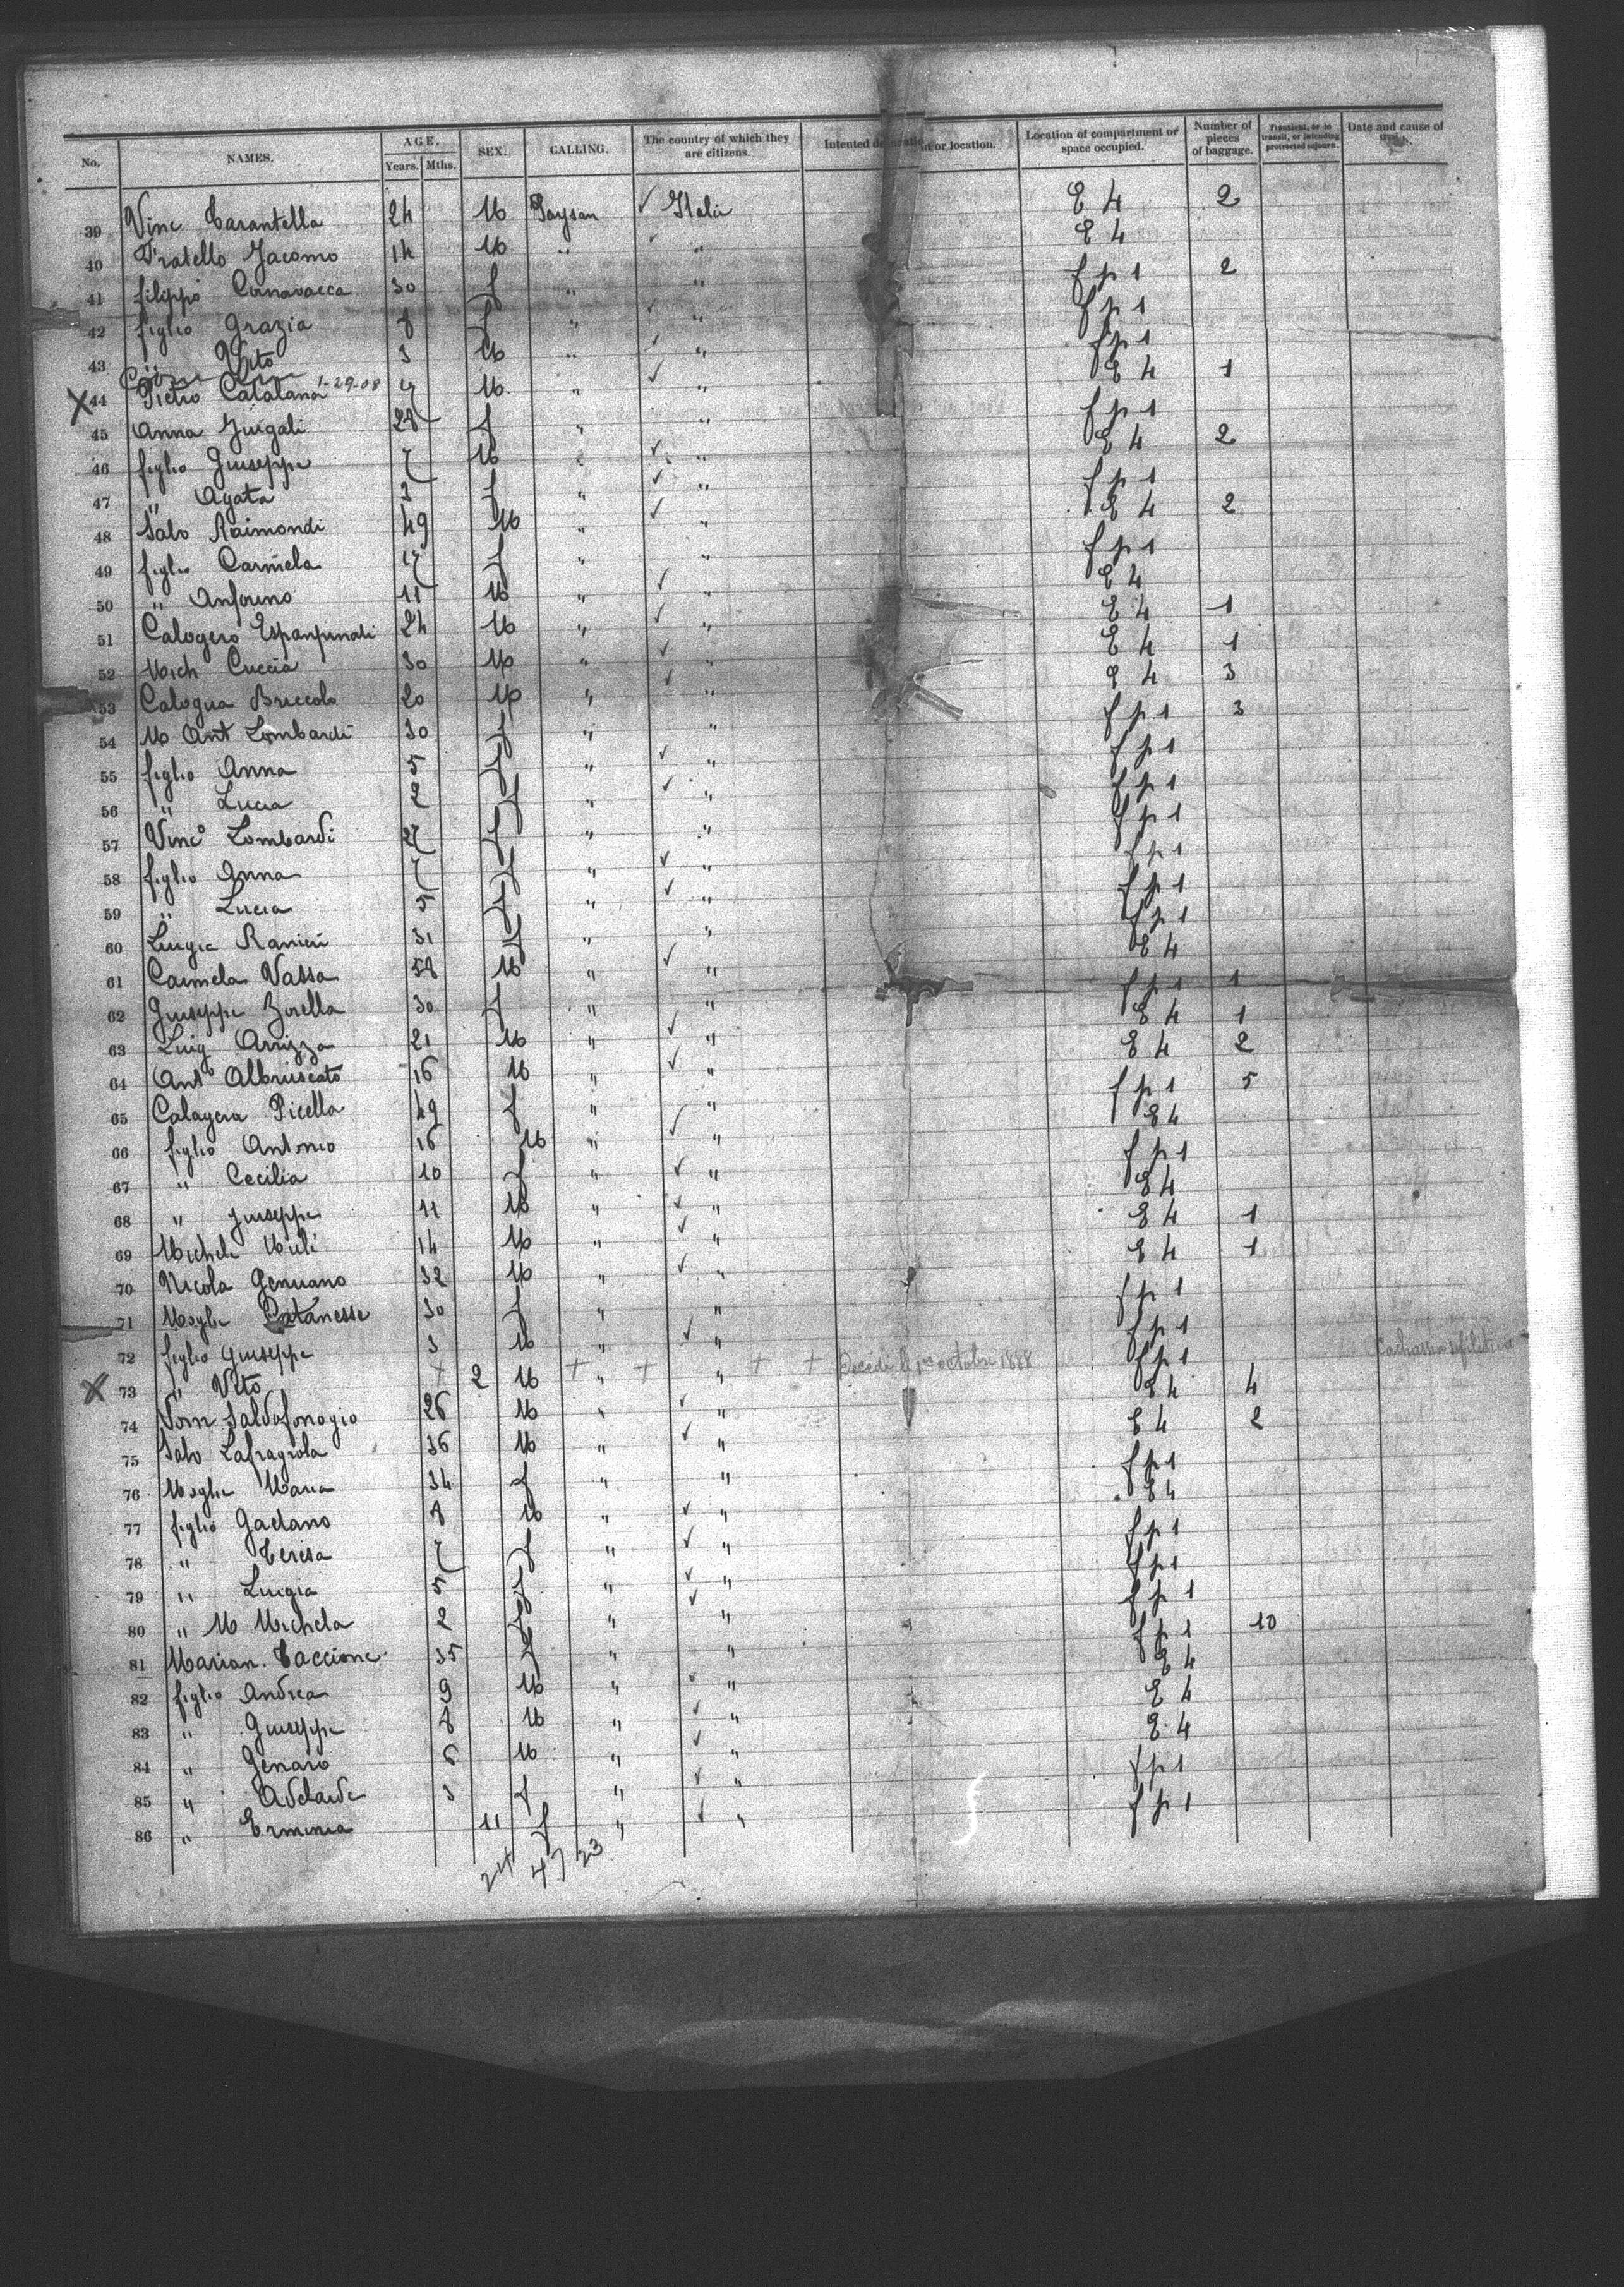 No. NAMES. AGE. Years. Mths. SEX. CALLING. The country of which they are citizens. Intented or location. Location of compartment or space occupied. Number of pieces of baggage. Transient, or in transit, or intending protracted sojourn. Date and cause of
39 Vinc Tarantella 24 M Paysan ✓ Italie E 4 2
40 Fratello Jacomo 14 M " ✓ " E 4
41 filippo 30 f " " f p 1 2
42 figlio Grazia 8 f " ✓ " f p 1
43 " Vito 3 M " ✓ " f p 1
X 44 Pietro Catalana 1-29-08 M " ✓ " E 4 1
45 Anna 28 f " " f p 1
46 figlio Giuseppe 7 M " ✓ " E 4 2
47 " Agata 3 f " ✓ " f p 1
48 Salv Raimondi 49 M " ✓ " E 4 2
49 figlio Carmela 17 f " " f p 1
50 " 11 M " ✓ " E 4
51 Calogero 24 M " ✓ " E 4 1
52 Mich Cuccia 30 M " ✓ " E 4 1
53 Calogua Bruccolo 20 M " ✓ " E 4 3
54 M Ant Lombardi 30 f " " f p 1 3
55 figlio Anna 5 f " ✓ " f p 1
56 " Lucia 2 f " ✓ " f p 1
57 Vinc° Lombardi 27 f " " f p 1
58 figlio Anna 7 f " ✓ " f p 1
59 " Lucia 5 f " ✓ " f p 1
60 Luigia Ranieri 31 f " " f p 1
61 Carmela Vassa 58 M " ✓ " E 4
62 Giuseppe Zorella 30 f " " f p 1 1
63 Luig Arrizza 21 M " ✓ " E 4 1
64 Ant° Albruscato 16 M " ✓ " E 4 2
65 Calagera Picella 49 f " " f p 1 5
66 figlio Antonio 16 M " ✓ " E 4
67 " Cecilia 10 f " ✓ " f p 1
68 " Giuseppe 11 M " ✓ " E 4
69 Michele Muli 14 M " ✓ " E 4 1
70 Nicola Genuano 32 M " ✓ " E 4 1
71 Moglie Catanesse 30 f " " f p 1
72 figlio Giuseppe 3 M " ✓ " f p 1
X 73 " Vito + 2 M + " + " + + Décédé le 1er octobre 1888 f p 1
74 Dom 26 M " ✓ " E 4 4
75 Salv Lafragola 36 M " ✓ " E 4 2
76 Moglie Maria 34 f " " f p 1
77 figlio Gaetano 8 M " ✓ " E 4
78 " Teresa 7 f " ✓ " f p 1
79 " Luigia 5 f " ✓ " f p 1
80 " M Michela 2 f " ✓ " f p 1
81 Marian. Taccione 35 f " " f p 1 10
82 figlio Andrea 9 M " ✓ " E 4
83 " Giuseppe 8 M " ✓ " E 4
84 " Genaro 6 M " ✓ " E 4
85 " Adelaide 3 f " ✓ " f p 1
86 " Erminia 11 f " ✓ " f p 1
24 47 23